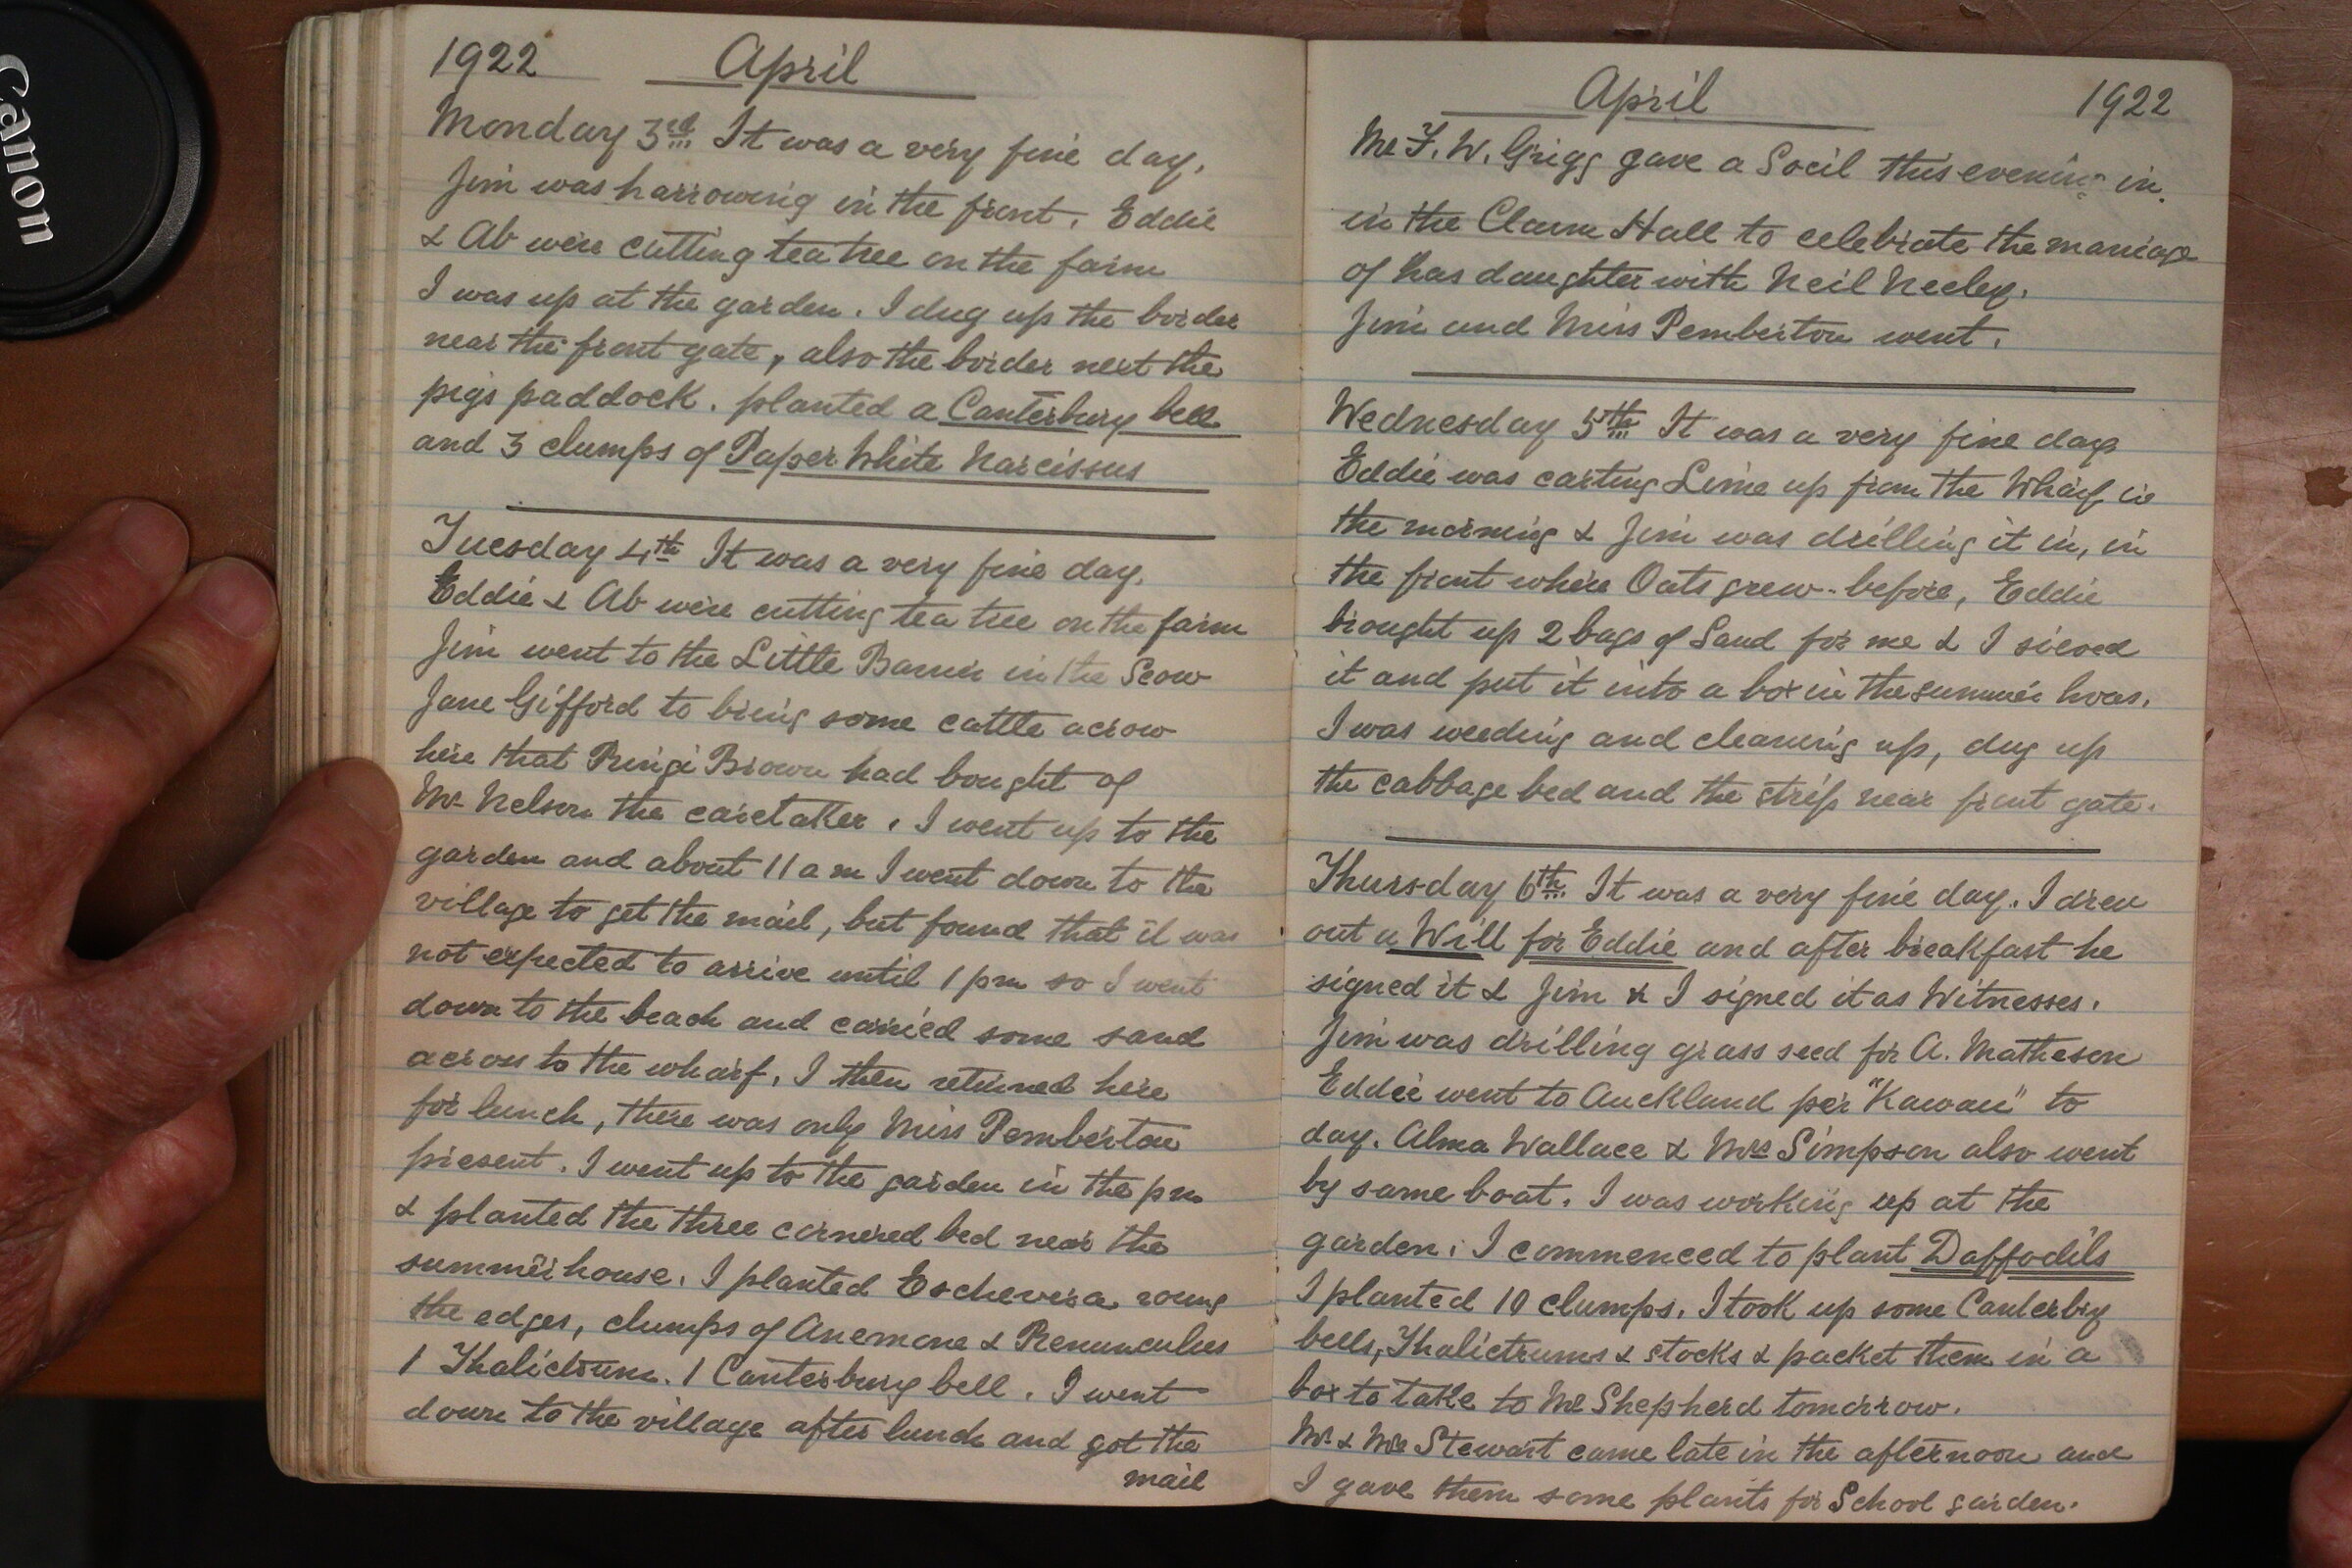 Canon
1922 April
Monday 3rd It was a very fine day.
Jim was harrowing in the front. Eddie
& Ab were cutting tea tree on the farm
I was up at the garden. I dug up the border
near the front gate, also the border next the
pigs paddock. planted a Canterbury bell
and 3 clumps of Paper White Narcissus
Tuesday 4th It was a very fine day.
Eddie & Ab were cutting tea tree on the farm
Jim went to the Little Barrier in the Scow
Jane Gifford to bring some cattle across
here that Ringi Brown had bought of
Mr Nelson the caretaker. I went up to the
garden and about 11 am I went down to the
village to get the mail, but found that it was
not expected to arrive until 1 pm so I went
down to the beach and carried some sand
across to the wharf. I then returned here
for lunch, there was only Miss Pemberton
present. I went up to the garden in the pm
& planted the three cornered bed near the
summerhouse. I planted Escheveria roung
the edges, clumps of Anemone & Renunculus
1 Thalictrum. 1 Canterbury bell. I went
down to the village after lunch and got the
mail
April 1922
Mr F. W. Grigg gave a Socil this evening in
in the Claim Hall to celebrate the marriage
of has daughter with Neil Neeley.
Jim and Miss Pemberton went.
Wednesday 5th It was a very fine day
Eddie was carting Lime up from the Wharf in
the morning & Jim was drilling it in, in
the front where Oats grew before, Eddie
brought up 2 bags of Sand for me & I sieved
it and put it into a box in the summer hoas.
I was weeding and cleaning up, dug up
the cabbage bed and the strip near front gate.
Thursday 6th It was a very fine day. I drew
out a Will for Eddie and after breakfast he
signed it & Jim & I signed it as Witnesses.
Jim was drilling grass seed for A. Matheson
Eddie went to Auckland per "Kawau" to
day. Alma Wallace & Mrs Simpson also went
by same boat. I was working up at the
garden. I commenced to plant Daffodils
I planted 10 clumps. I took up some Canterbry
bells, Thalictrums & stocks & packet them in a
box to take to Mr Shepherd tomorrow.
Mr & Mrs Stewart came late in the afternoon and
I gave them some plants for School garden.